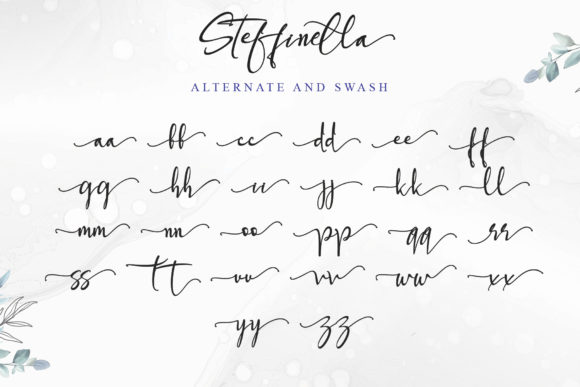 Steffinella
ALTERNATE AND SWASH
aa bb cc dd ee ff
gg hh ii jj kk ll
mm nn oo pp qq rr
ss tt uu vv ww xx
yy zz